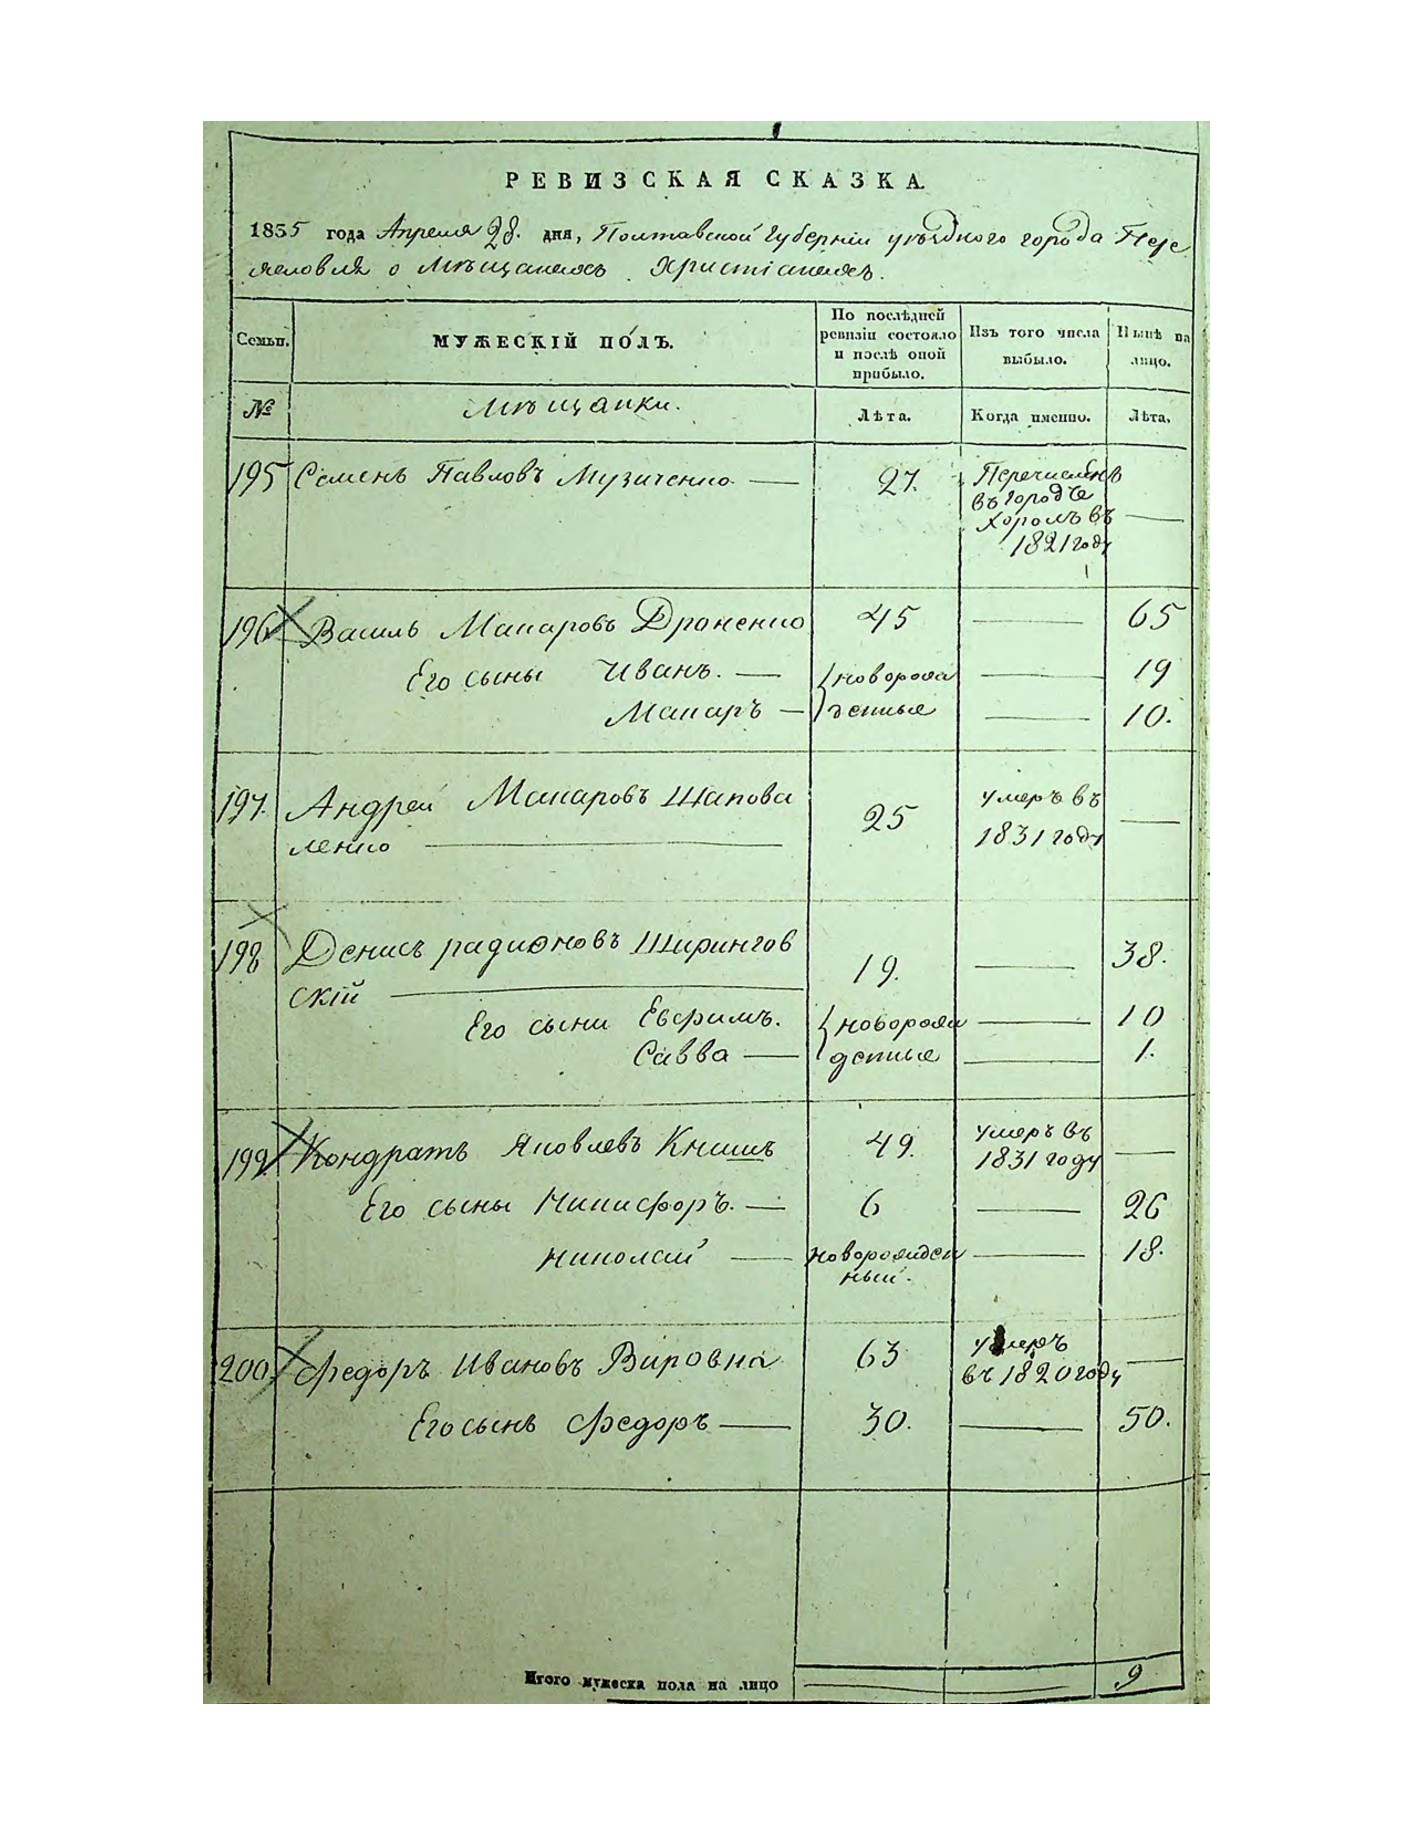 РЕВИЗСКАЯ СКАЗКА.
1835 года Апреля 28. дня, Полтавской Губерніи уѣзднаго города Пере
яславля о Мѣщанахъ Христіанахъ.
Семьи. МУЖЕСКІЙ ПОЛЪ. По послѣдней ревизіи состояло и послѣ оной прибыло. Изъ того числа выбыло. Нынѣ на лицо.
№ Мѣщанки. Лѣта. Когда именно. Лѣта.
195 Семенъ Павловъ Музиченко 27. Перечисленъ
въ городѣ
Хоролъ въ
1821 году
196 Василь Макаровъ Дроненко 45 65
Его сыны Иванъ. новорож 19
Макаръ денные 10.
197. Андрей Макаровъ Шапова 25 умеръ въ
ленко 1831 году
198 Денисъ радионовъ Ширингов 19. 38.
скій
Его сыни Евфимъ. новорож 10
Савва денные 1.
199 Кондратъ Яковлевъ Книшъ 49. умеръ въ
1831 году
Его сыны Никифоръ. 6 26
Николай новорожден 18.
ный.
200. Федоръ Ивановъ Вировка 63 умеръ
въ 1820 году
Его сынъ Федоръ 30. 50.
Итого мужеска пола на лицо 9